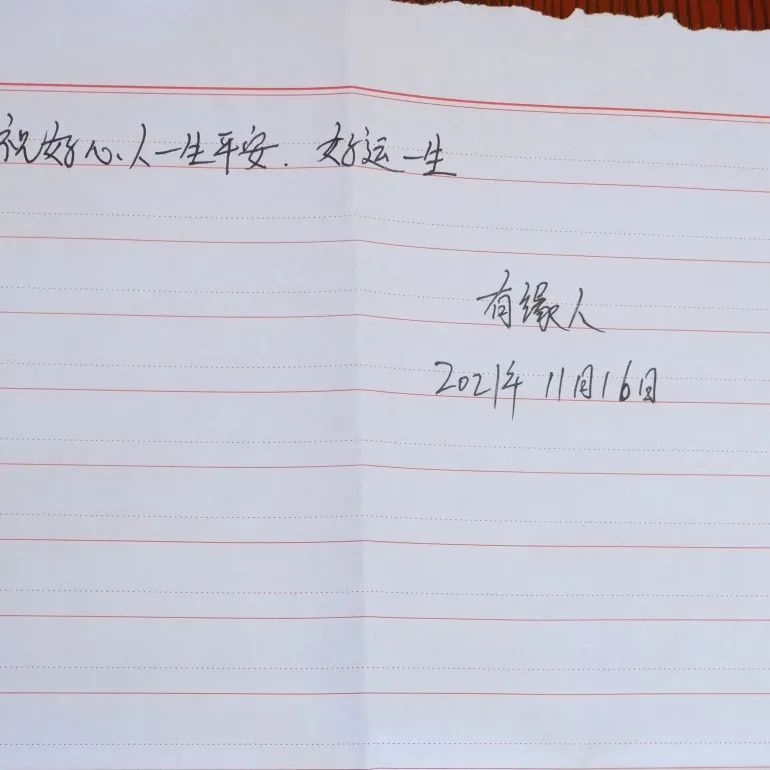 祝好心人一生平安. 好运一生
有缘人
2021年11月16日